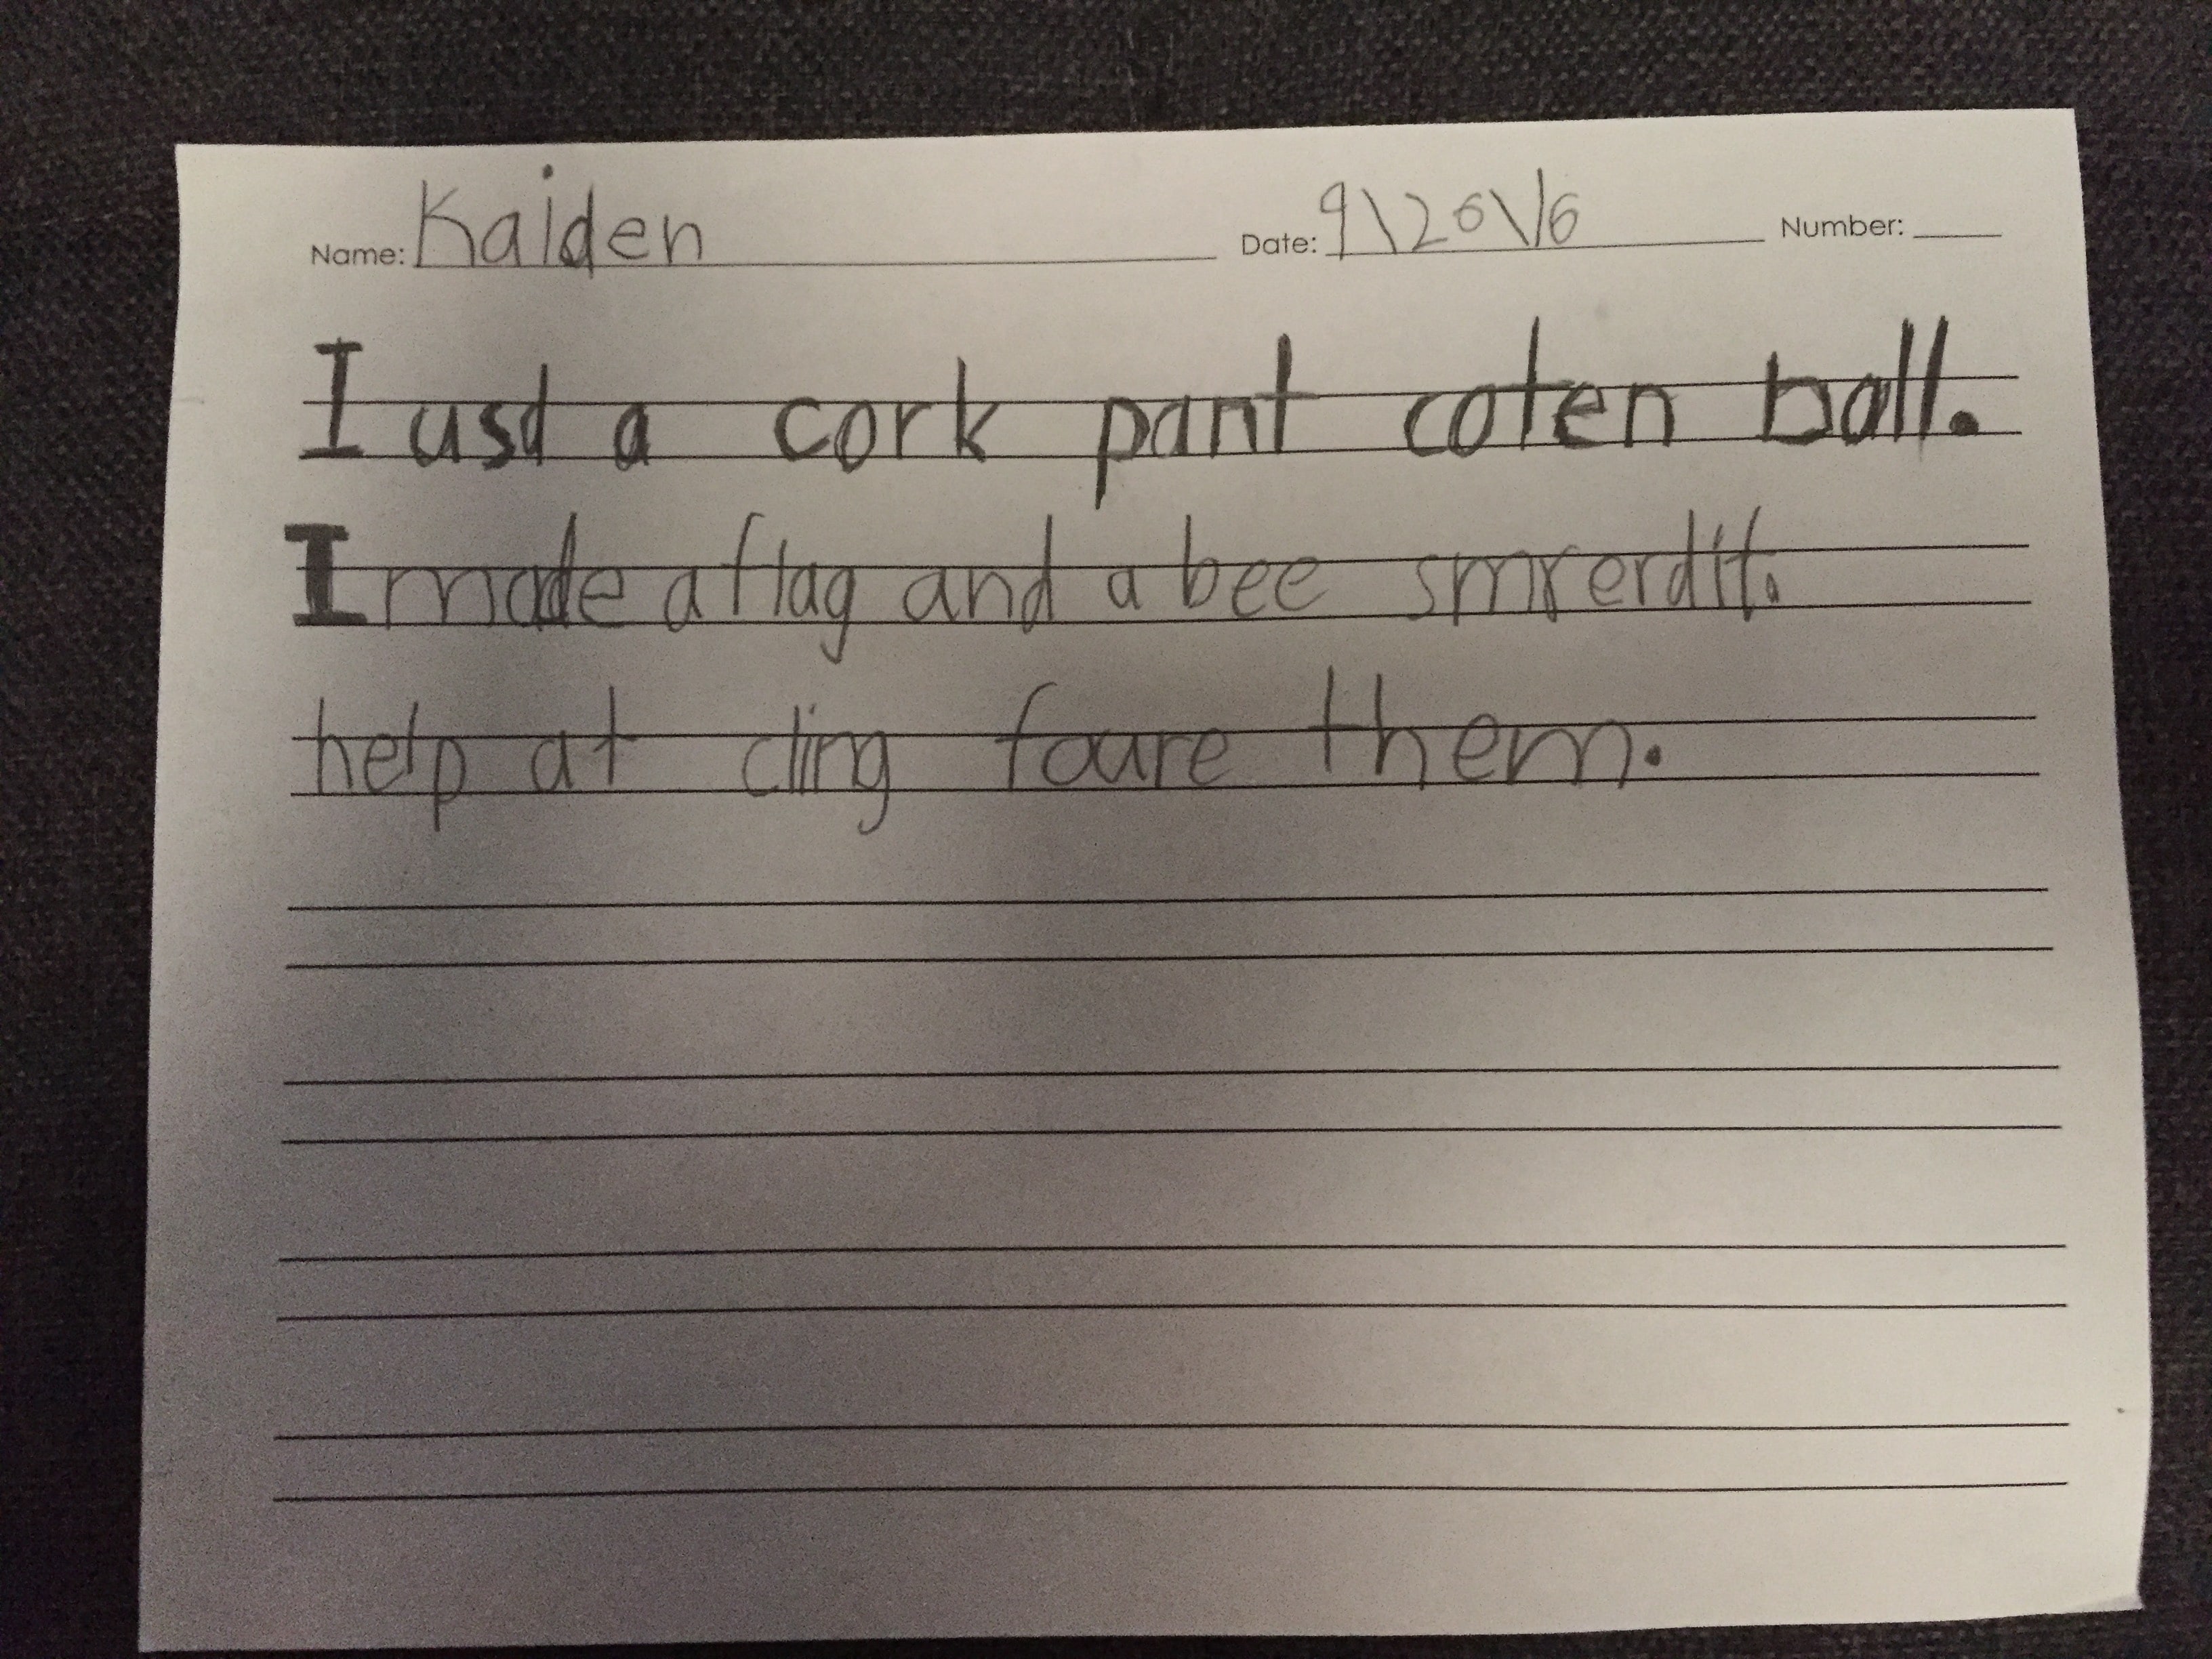 Name: Kaiden Date: 9\20\16 Number:
I usd a cork pant coten ball.
I made a flag and a bee smrerdit.
help at cling foure them.